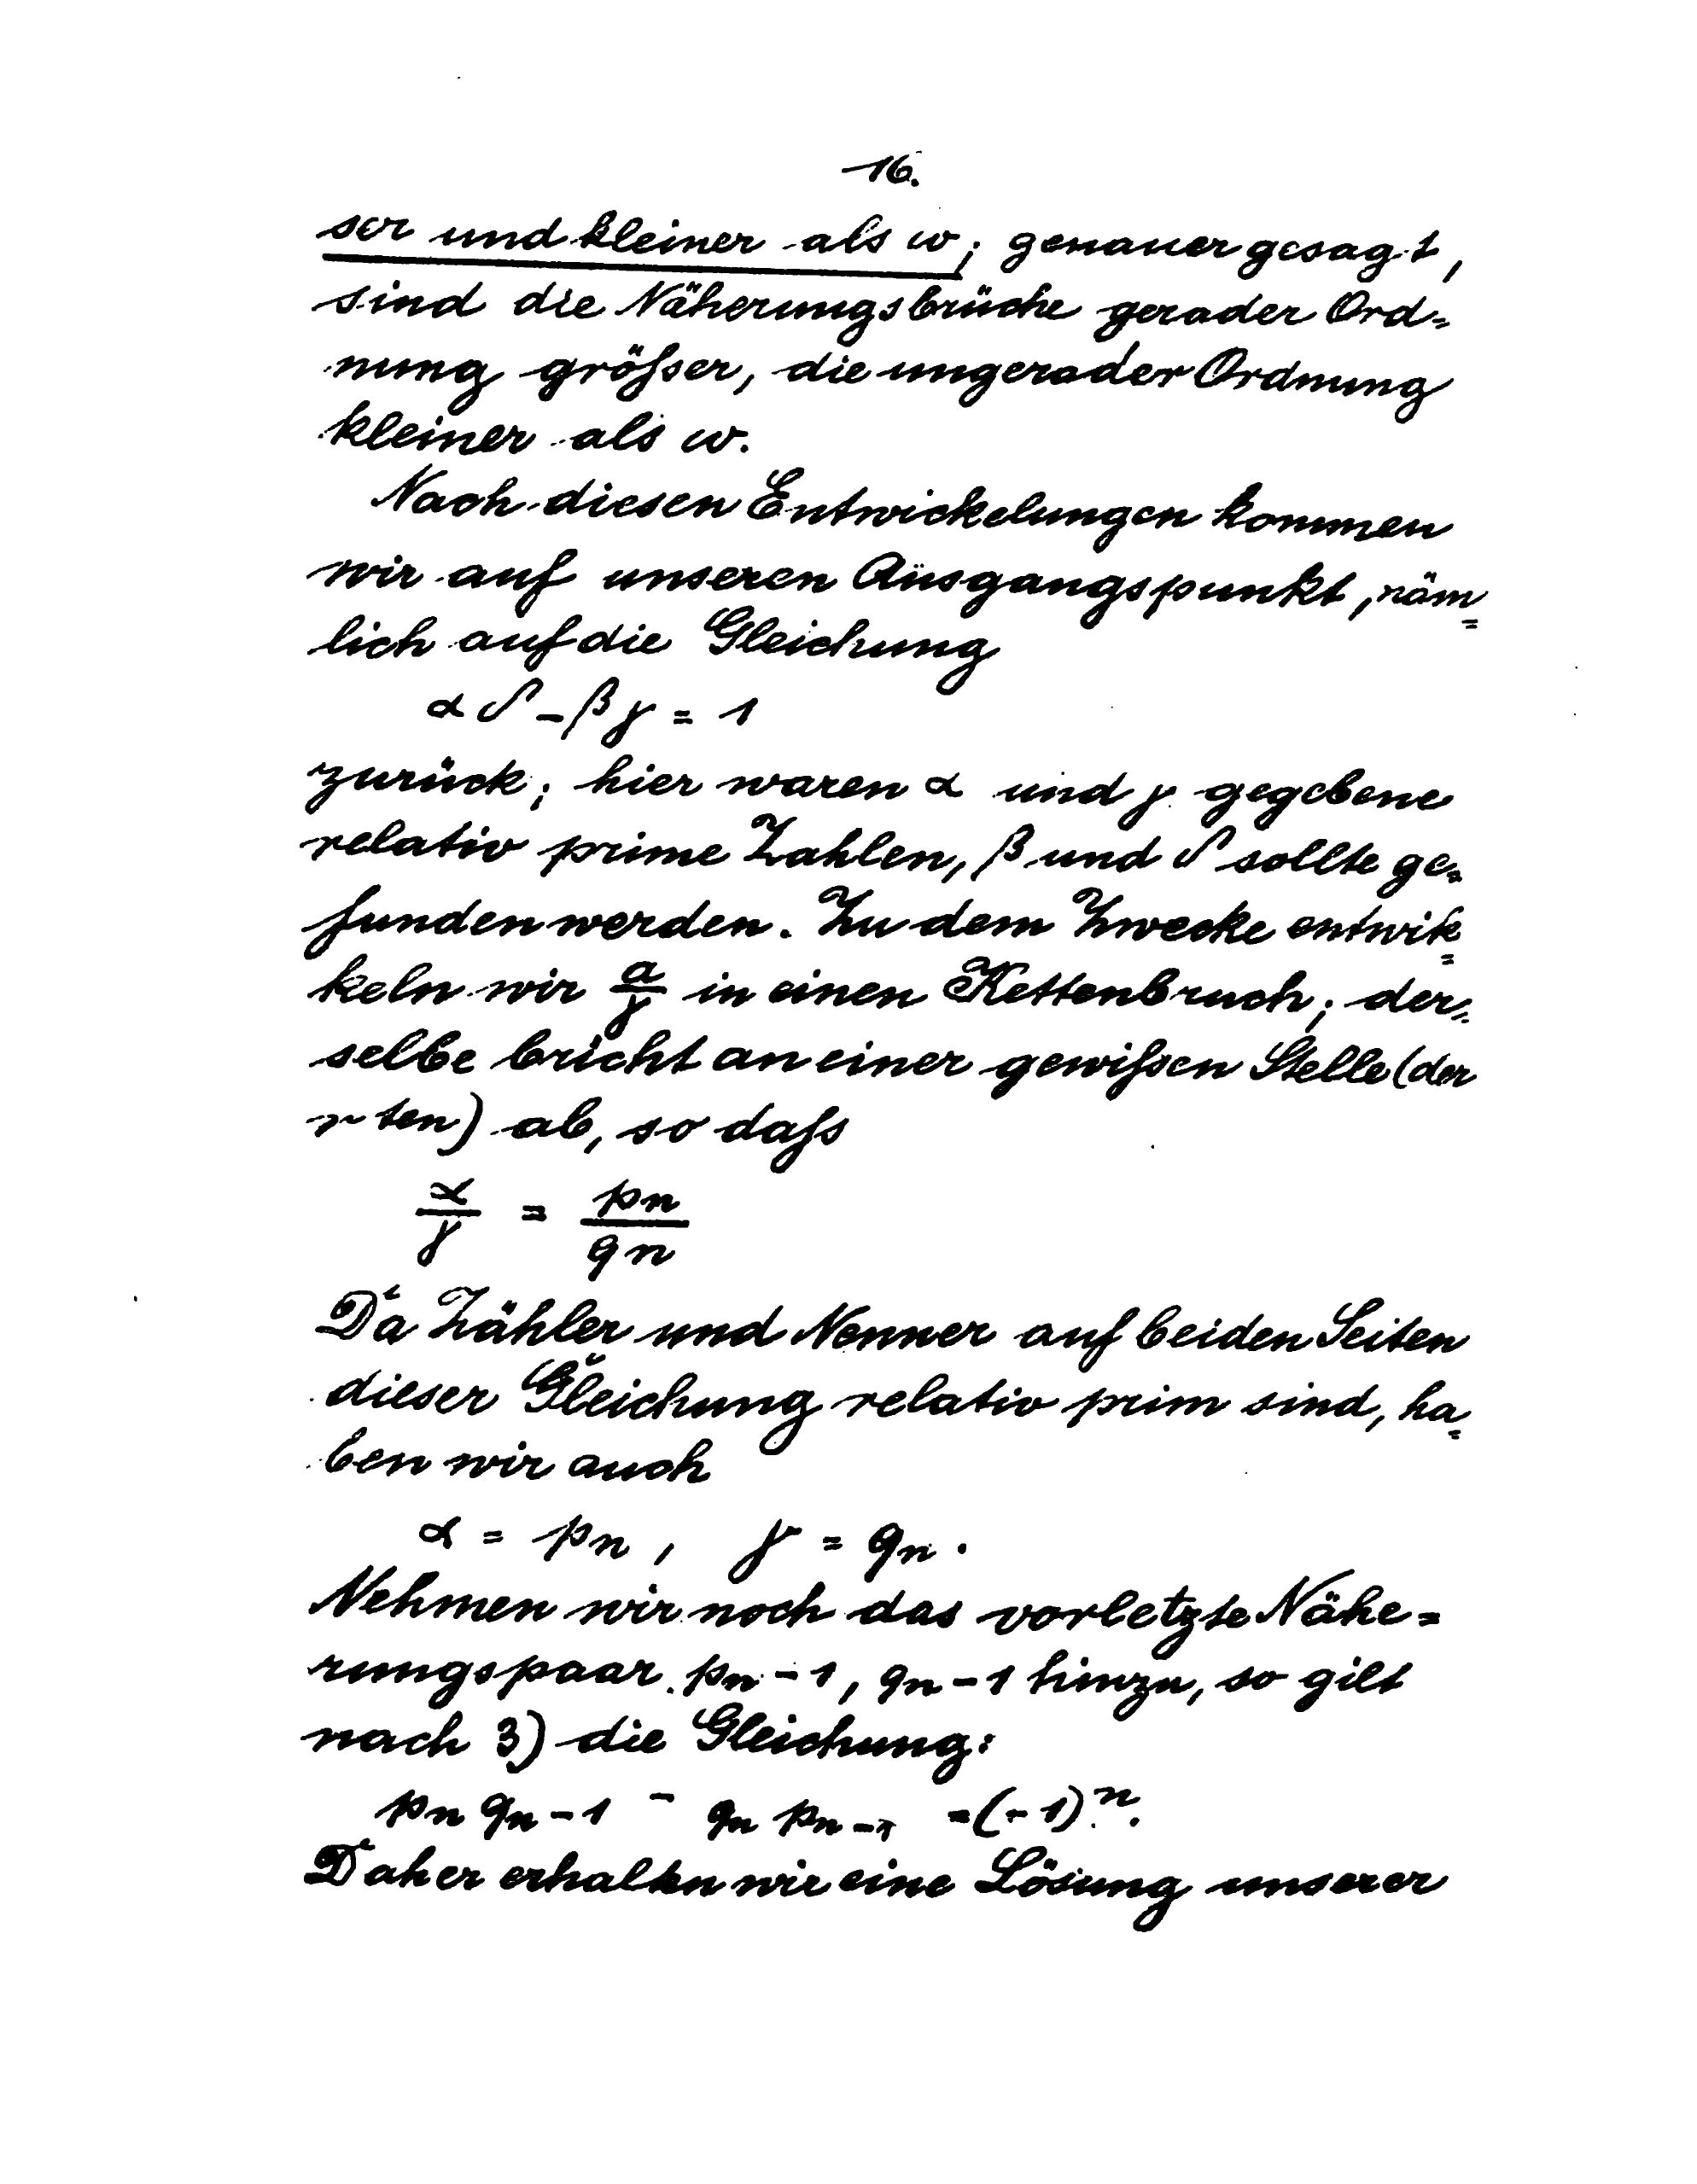 16.
ser und kleiner als ω; genauer gesagt,
sind die Näherungsbrüche gerader Ord=
nung größer, die ungerader Ordnung
kleiner als ω.
Nach diesen Entwickelungen kommen
wir auf unseren Ausgangspunkt, näm=
lich auf die Gleichung
αδ - βγ = 1
zurück; hier waren α und γ gegebene
relativ prime Zahlen, β und δ sollte ge=
funden werden. Zu dem Zwecke entwik=
keln wir α/γ in einen Kettenbruch; der=
selbe bricht an einer gewißen Stelle (der
nten) ab, so daß
α/γ = pn/qn
Da Zähler und Nenner auf beiden Seiten
dieser Gleichung relativ prim sind, ha=
ben wir auch
α = pn, γ = qn.
Nehmen wir noch das vorletzte Nähe=
rungspaar pn-1, qn-1 hinzu, so gilt
nach 3) die Gleichung:
pn qn-1 - qn pn-1 = (-1)^n.
Daher erhalten wir eine Lösung unserer